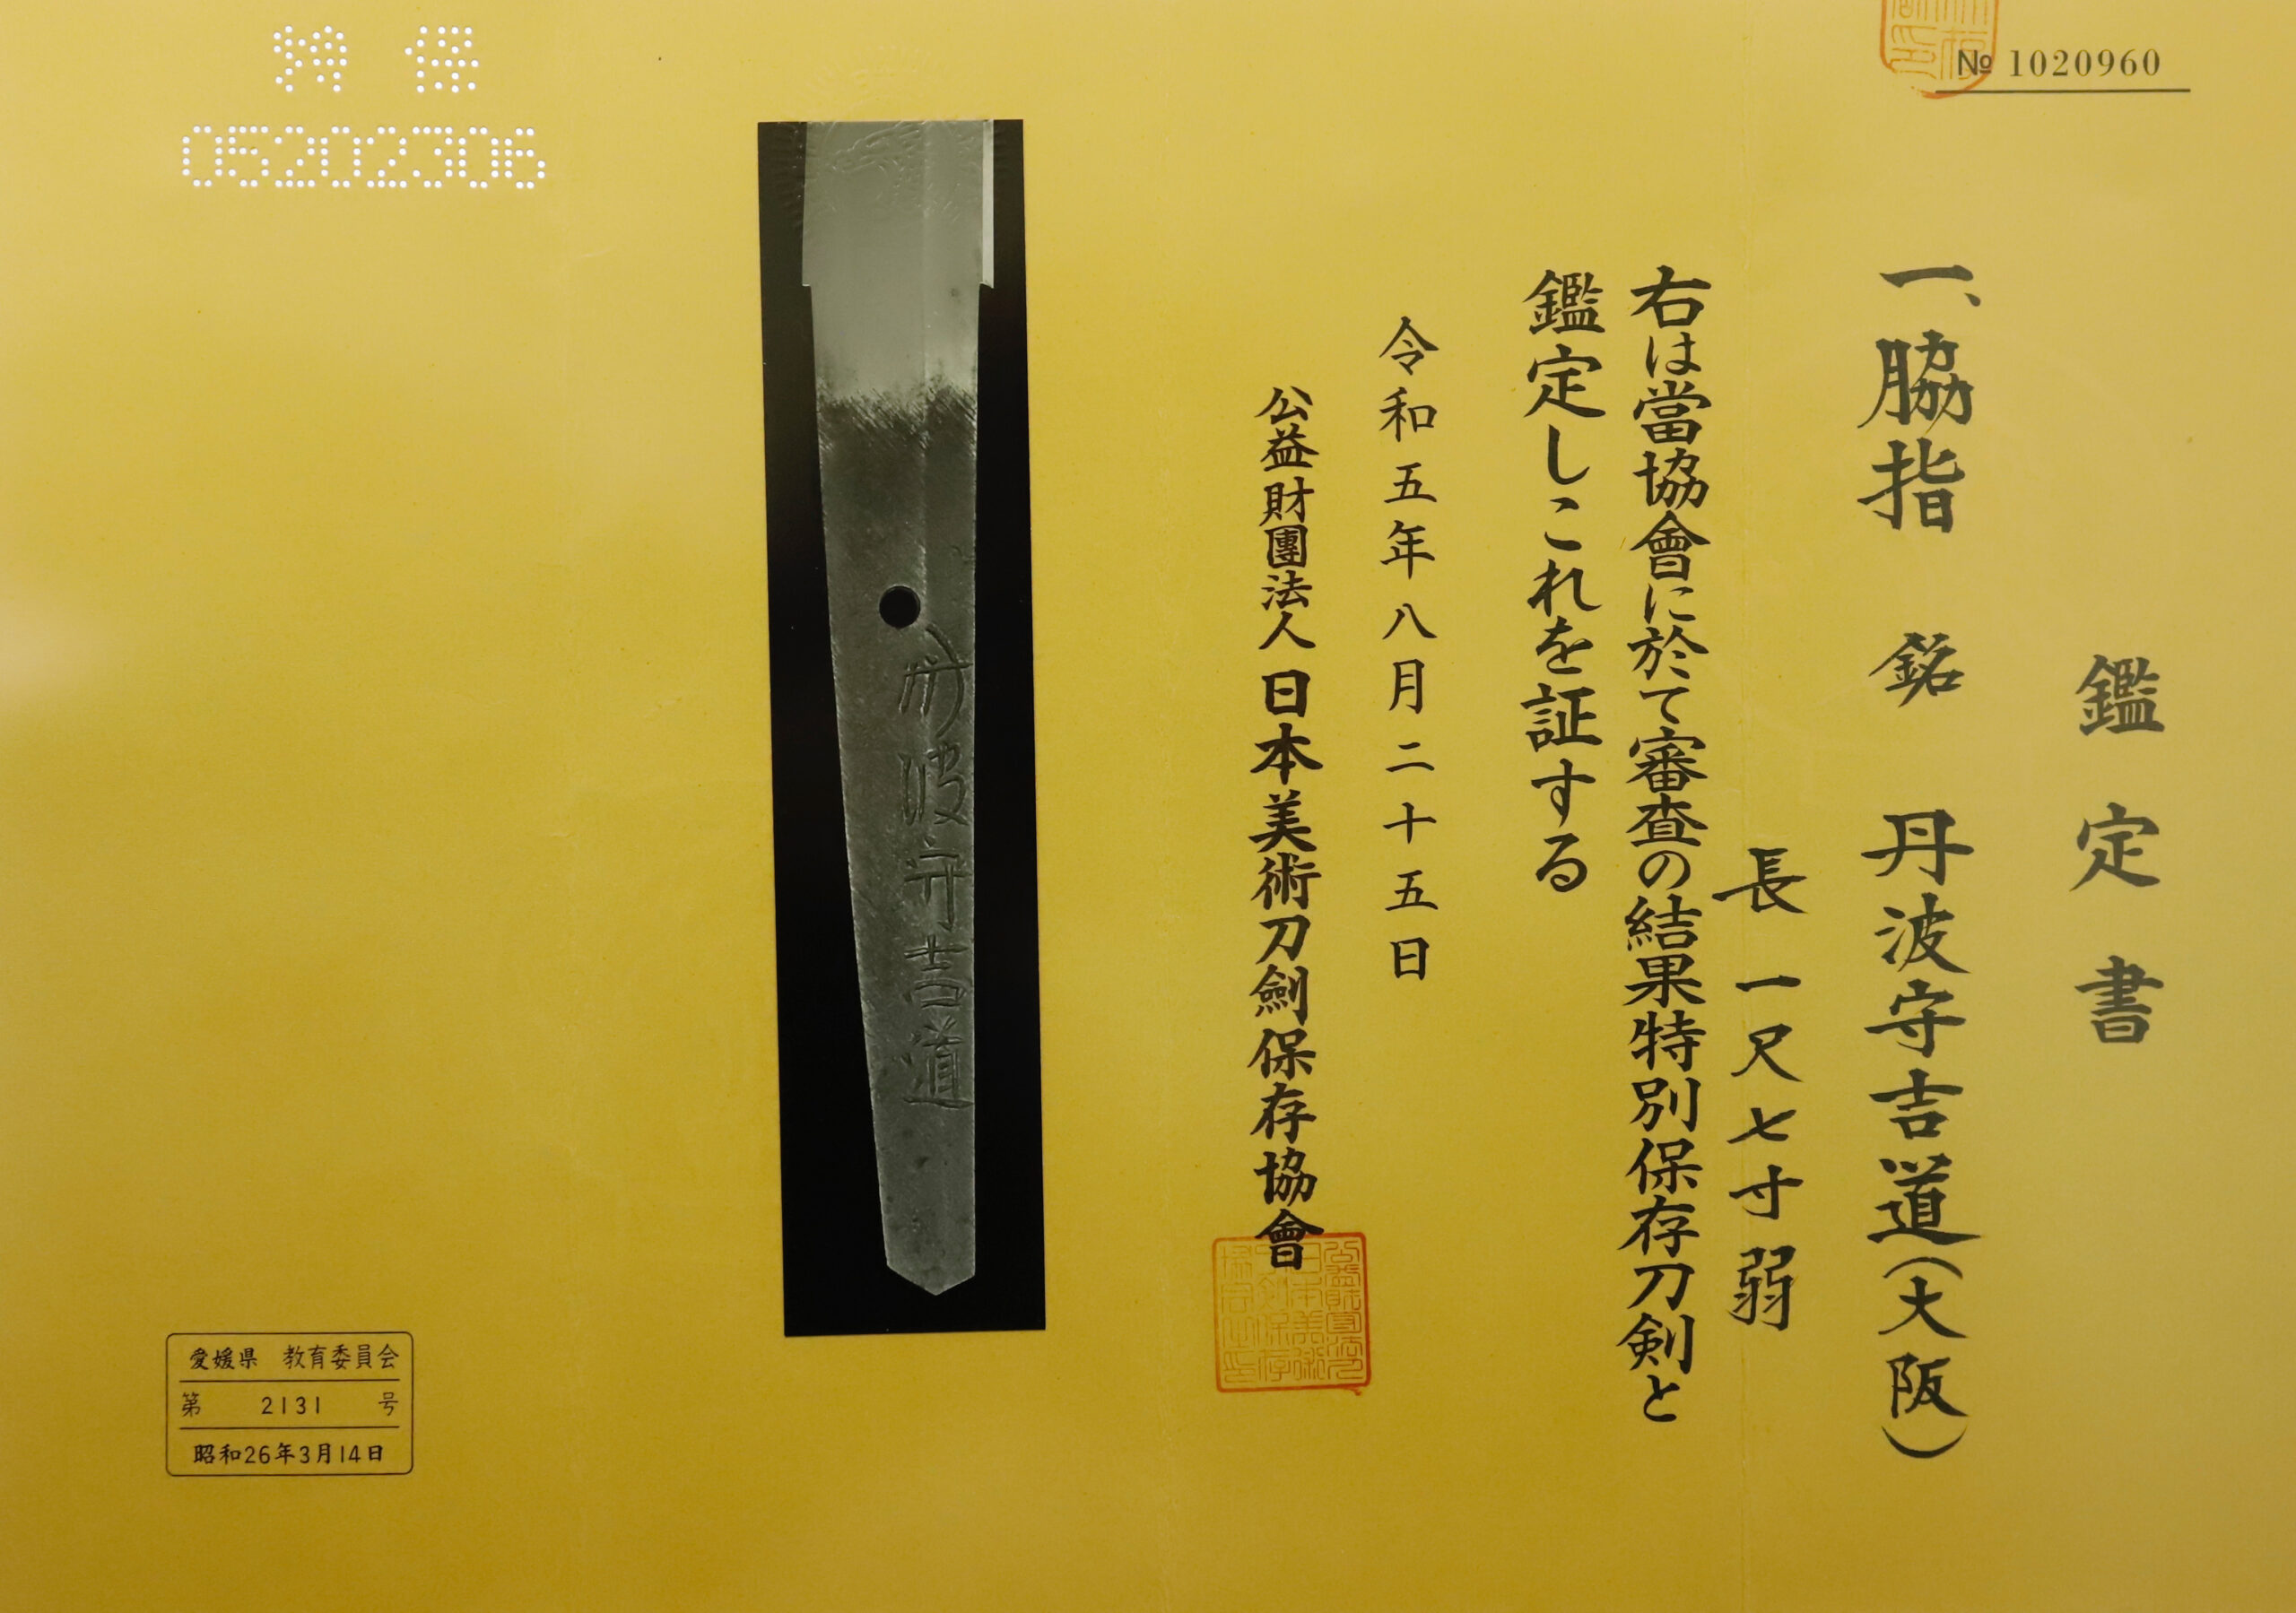 № 1020960
鑑定書
一、脇指 銘 丹波守吉道(大阪)
長 一尺七寸弱
右は當協會に於て審査の結果特別保存刀剣と
鑑定しこれを証する
令和五年八月二十五日
公益財團法人日本美術刀劍保存協會
丹波守吉道
特保
05202306
愛媛県 教育委員会
第 2131 号
昭和26年3月14日